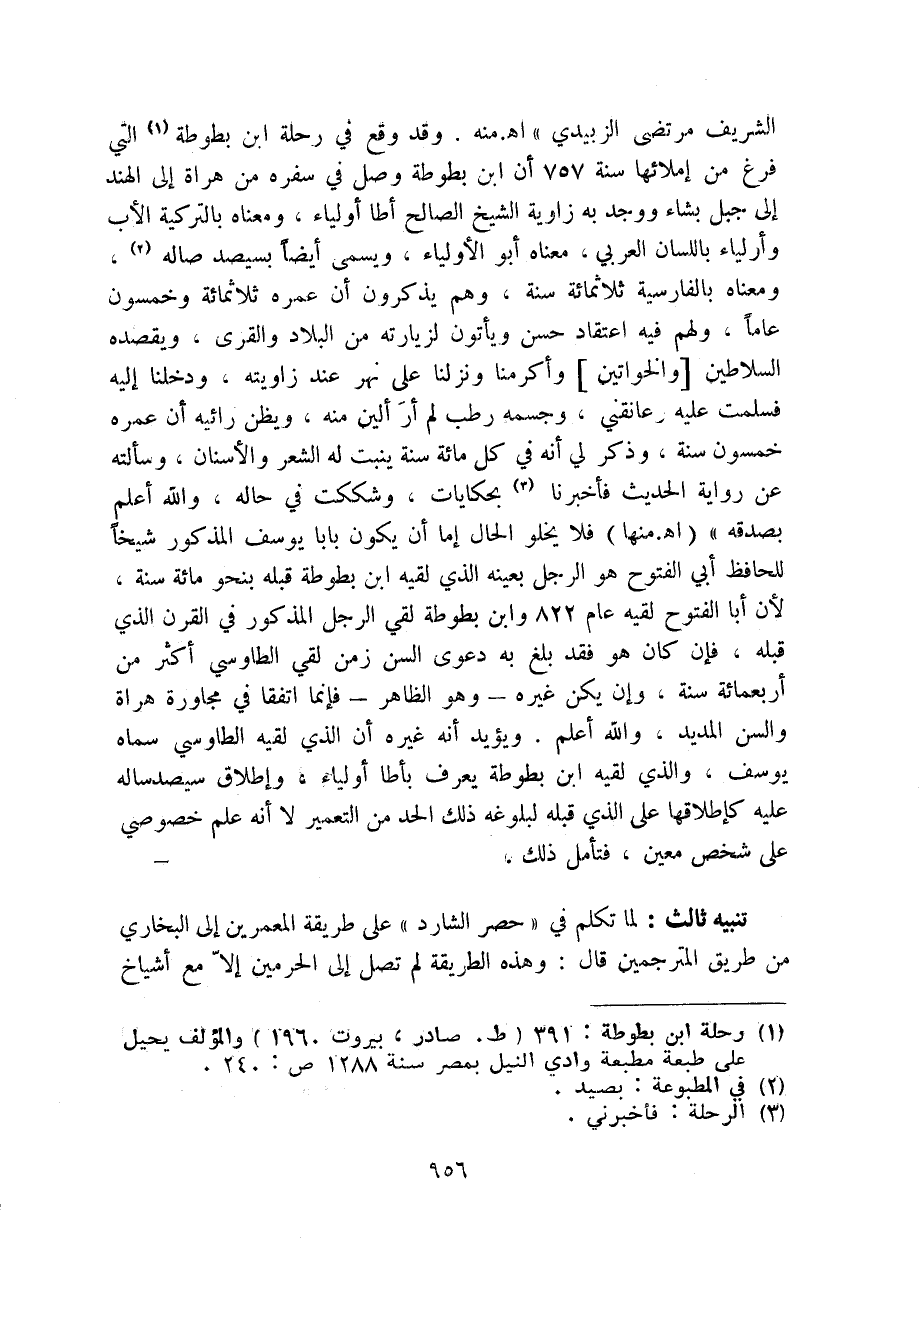 الشريف مرتضى الزبيدي » اهـ.منه . وقد وقع في رحلة ابن بطوطة (١) التي
فرغ من إملائها سنة ٧٥٧ أن ابن بطوطة وصل في سفره من هراة إلى الهند
إلى جبل بشاء ووجد به زاوية الشيخ الصالح أطا أولياء ، ومعناه بالتركية الأب
وأولياء باللسان العربي ، معناه أبو الأولياء ، ويسمى أيضاً بسيصد صاله (٢) ،
ومعناه بالفارسية ثلاثمائة سنة ، وهم يذكرون أن عمره ثلاثمائة وخمسون
عاماً ، ولهم فيه اعتقاد حسن ويأتون لزيارته من البلاد والقرى ، ويقصده
السلاطين [والخواتين] وأكرمنا ونزلنا على نهر عند زاويته ، ودخلنا إليه
فسلمت عليه وعانقني ، وجسمه رطب لم أرَ ألين منه ، ويظن رائيه أن عمره
خمسون سنة ، وذكر لي أنه في كل مائة سنة ينبت له الشعر والأسنان ، وسألته
عن رواية الحديث فأخبرنا (٣) بحكايات ، وشككت في حاله ، والله أعلم
بصدقه » ( اهـ.منها ) فلا يخلو الحال إما أن يكون بابا يوسف المذكور شيخاً
للحافظ أبي الفتوح هو الرجل بعينه الذي لقيه ابن بطوطة قبله بنحو مائة سنة ،
لأن أبا الفتوح لقيه عام ٨٢٢ وابن بطوطة لقي الرجل المذكور في القرن الذي
قبله ، فإن كان هو فقد بلغ به دعوى السن زمن لقي الطاوسي أكثر من
أربعمائة سنة ، وإن يكن غيره – وهو الظاهر – فإنما اتفقا في مجاورة هراة
والسن المديد ، والله أعلم . ويؤيد أنه غيره أن الذي لقيه الطاوسي سماه
يوسف ، والذي لقيه ابن بطوطة يعرف بأطا أولياء ، وإطلاق سيصدساله
عليه كإطلاقها على الذي قبله لبلوغه ذلك الحد من التعمير لا أنه علم خصوصي
على شخص معين ، فتأمل ذلك .
تنبيه ثالث : لما تكلم في « حصر الشارد » على طريقة المعمرين إلى البخاري
من طريق المترجمين قال : وهذه الطريقة لم تصل إلى الحرمين إلاّ مع أشياخ
(١) رحلة ابن بطوطة : ٣٩١ ( ط. صادر ، بيروت ١٩٦٠ ) والمؤلف يحيل
على طبعة مطبعة وادي النيل بمصر سنة ١٢٨٨ ص : ٢٤٠ .
(٢) في المطبوعة : بصيد .
(٣) الرحلة : فأخبرني .
٩٥٦